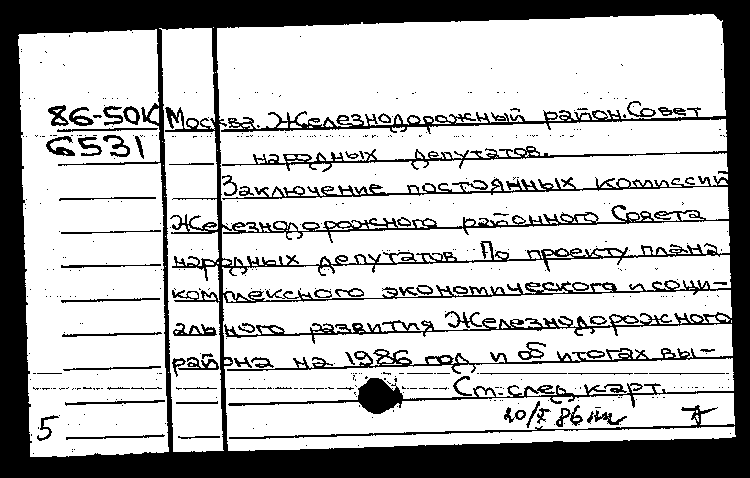 86-50К Москва. Железнодорожный район. Совет
6531 народных депутатов.
Заключение постоянных комиссий
Железнодорожного районного Совета
народных депутатов По проекту плана
комплексного экономического и соци-
ального развития Железнодорожного
района на 1986 год и об итогах вы-
См. след. карт.
20/X 86
5